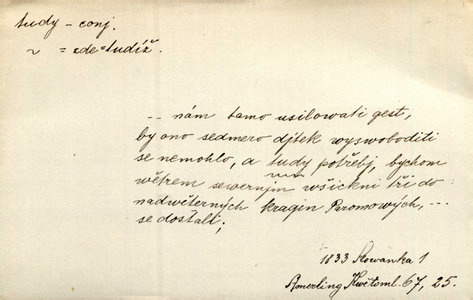 tudy – conj.
~ = zde = tudíž.
-- nám tamo usilowati gest,
by ono sedmero djtek wyswoboditi
se nemohlo, a tudy potřebj, bychom
wětrem sewernjm wšickni tři do
nadwěterných kragin Buromowých, ---
se dostali;
1833 Slowanka 1
Amerling Květoml. 67, 25.